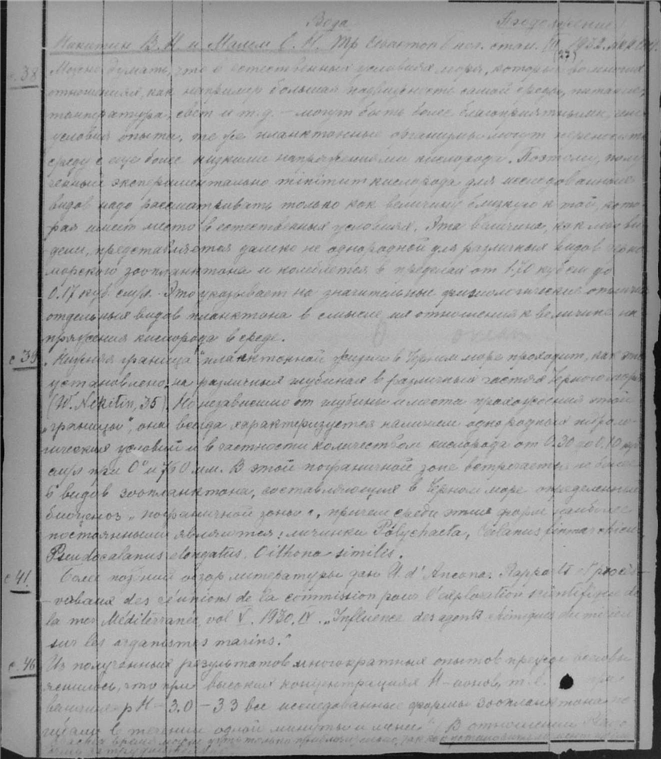 Вода Пределение
Никитин В. Н. и Малм Е. Н. Тр. Севастоп. биол. стан. III 1932
с. 38 Можно думать, что в естественных условиях моря, которые во многих
отношениях, как например большая подвижность самой среды,
температура, свет и т.д. – могут быть более благоприятными, чем
условия опыта, те же планктонные организмы могут переносить
среду с еще более низкими напряжениями кислорода. Поэтому, полу-
ченный экспериментально minimum кислорода для исследованных
видов надо рассматривать только как величину близкую к той, кото-
рая имеет место в естественных условиях. Эта величина, как мы ви-
дели, представляется далеко не однородной для различных видов черно-
морского зоопланктона и колеблется в пределах от куб см до
0.17 куб. см/л. Это указывает на значительные физиологические отличия
отдельных видов планктона в смысле их отношения к величине на-
пряжения кислорода в среде.
с. 39 "Нижняя граница" планктонной жизни в Черном море проходит, как это
установлено, на различных глубинах в различных частях Черного моря
(W. Nikitin, 35). Но независимо от глубины и места прохождения этой
"границы", она всегда характеризуется наличием однородных гидроло-
гических условий и в частности количеством кислорода от 0.30 до 0.10 куб
см/л при 0° и 760 мм. В этой пограничной зоне встречается не более
6 видов зоопланктона, составляющих в Черном море определенный
биоценоз "пограничной зоны", причем среди этих форм наиболее
постоянными являются: личинки Polychaeta, Calanus finmarchicus,
Pseudocalanus elongatus, Oithona similis.
с 41 Более поздний обзор литературы дан U. d'Ancona. Rapports et procès-
verbaux des réunions de la commission pour l'exploration scientifique de
la mer Méditerranée, vol V. 1930. IV. "Influence des agents chimiques du milieu
sur les organismes marins."
с. 46 Из полученных результатов многократных опытов прежде всего вы-
яснилось, что при высоких концентрациях H-ионов, т.е. при
величине pH – 3,0 – 3,3 все исследованные формы зоопланктона по-
гибают в течении одной минуты и менее. В отношении